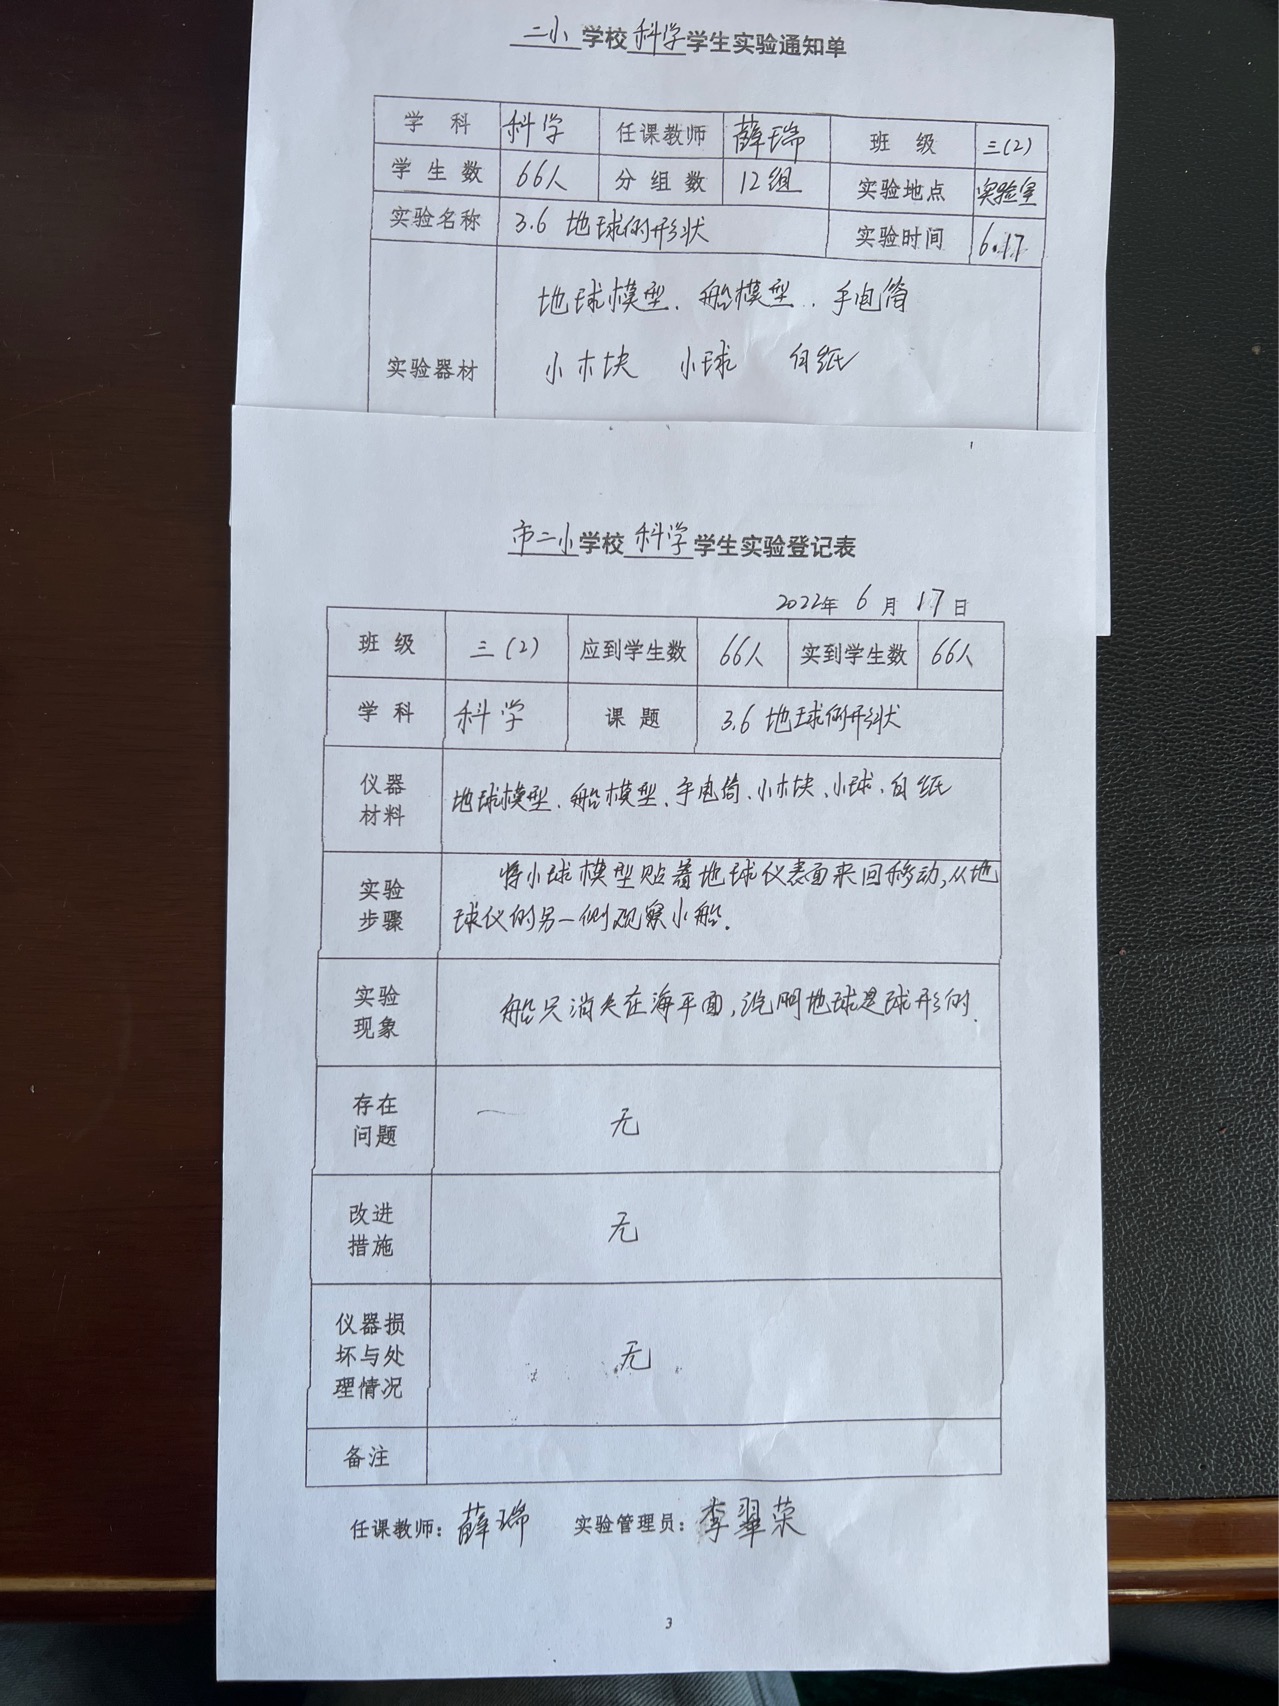 二小学校科学学生实验通知单
学 科 科学 任课教师 薛瑞 班 级 三(2)
学 生 数 66人 分 组 数 12组 实验地点 实验室
实验名称 3.6 地球的形状 实验时间 6.17
实验器材 地球模型、船模型、手电筒
小木块 小球 白纸
市二小学校科学学生实验登记表
2022年 6 月 17 日
班 级 三(2) 应到学生数 66人 实到学生数 66人
学 科 科学 课 题 3.6 地球的形状
仪器
材料
地球模型、船模型、手电筒、小木块、小球、白纸
实验
步骤
将小球模型贴着地球仪表面来回移动,从地
球仪的另一侧观察小船.
实验
现象
船只消失在海平面,说明地球是球形的.
存在
问题
无
改进
措施
无
仪器损
坏与处
理情况
无
备注
任课教师:薛瑞 实验管理员:李翠荣
3